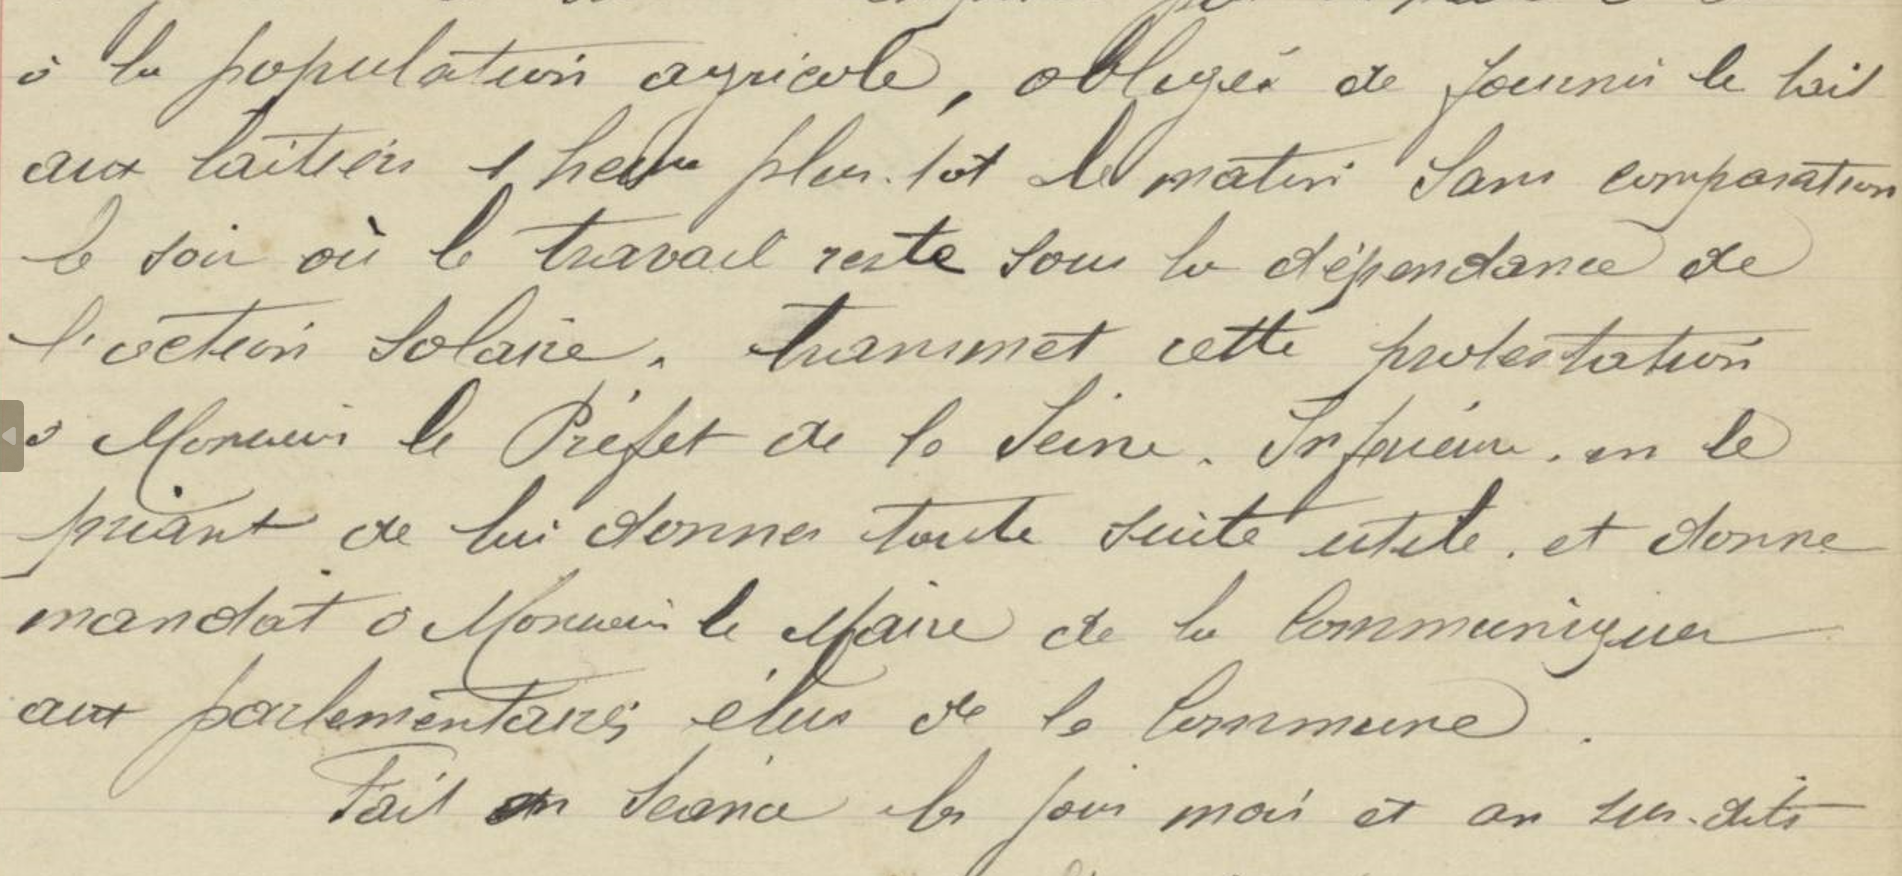 à la population agricole, obligée de fournir le lait
aux laitiers 1 heure plus tôt le matin sans comparaison
le soir où le travail reste sous la dépendance de
l'action solaire. transmet cette protestation
à Monsieur le Préfet de la Seine-Inférieure. en le
priant de lui donner toute suite utile. et donne
mandat à Monsieur le Maire de la Communiquer
aux parlementaires élus de la Commune.
Fait en Séance les jour mois et an sus-dits